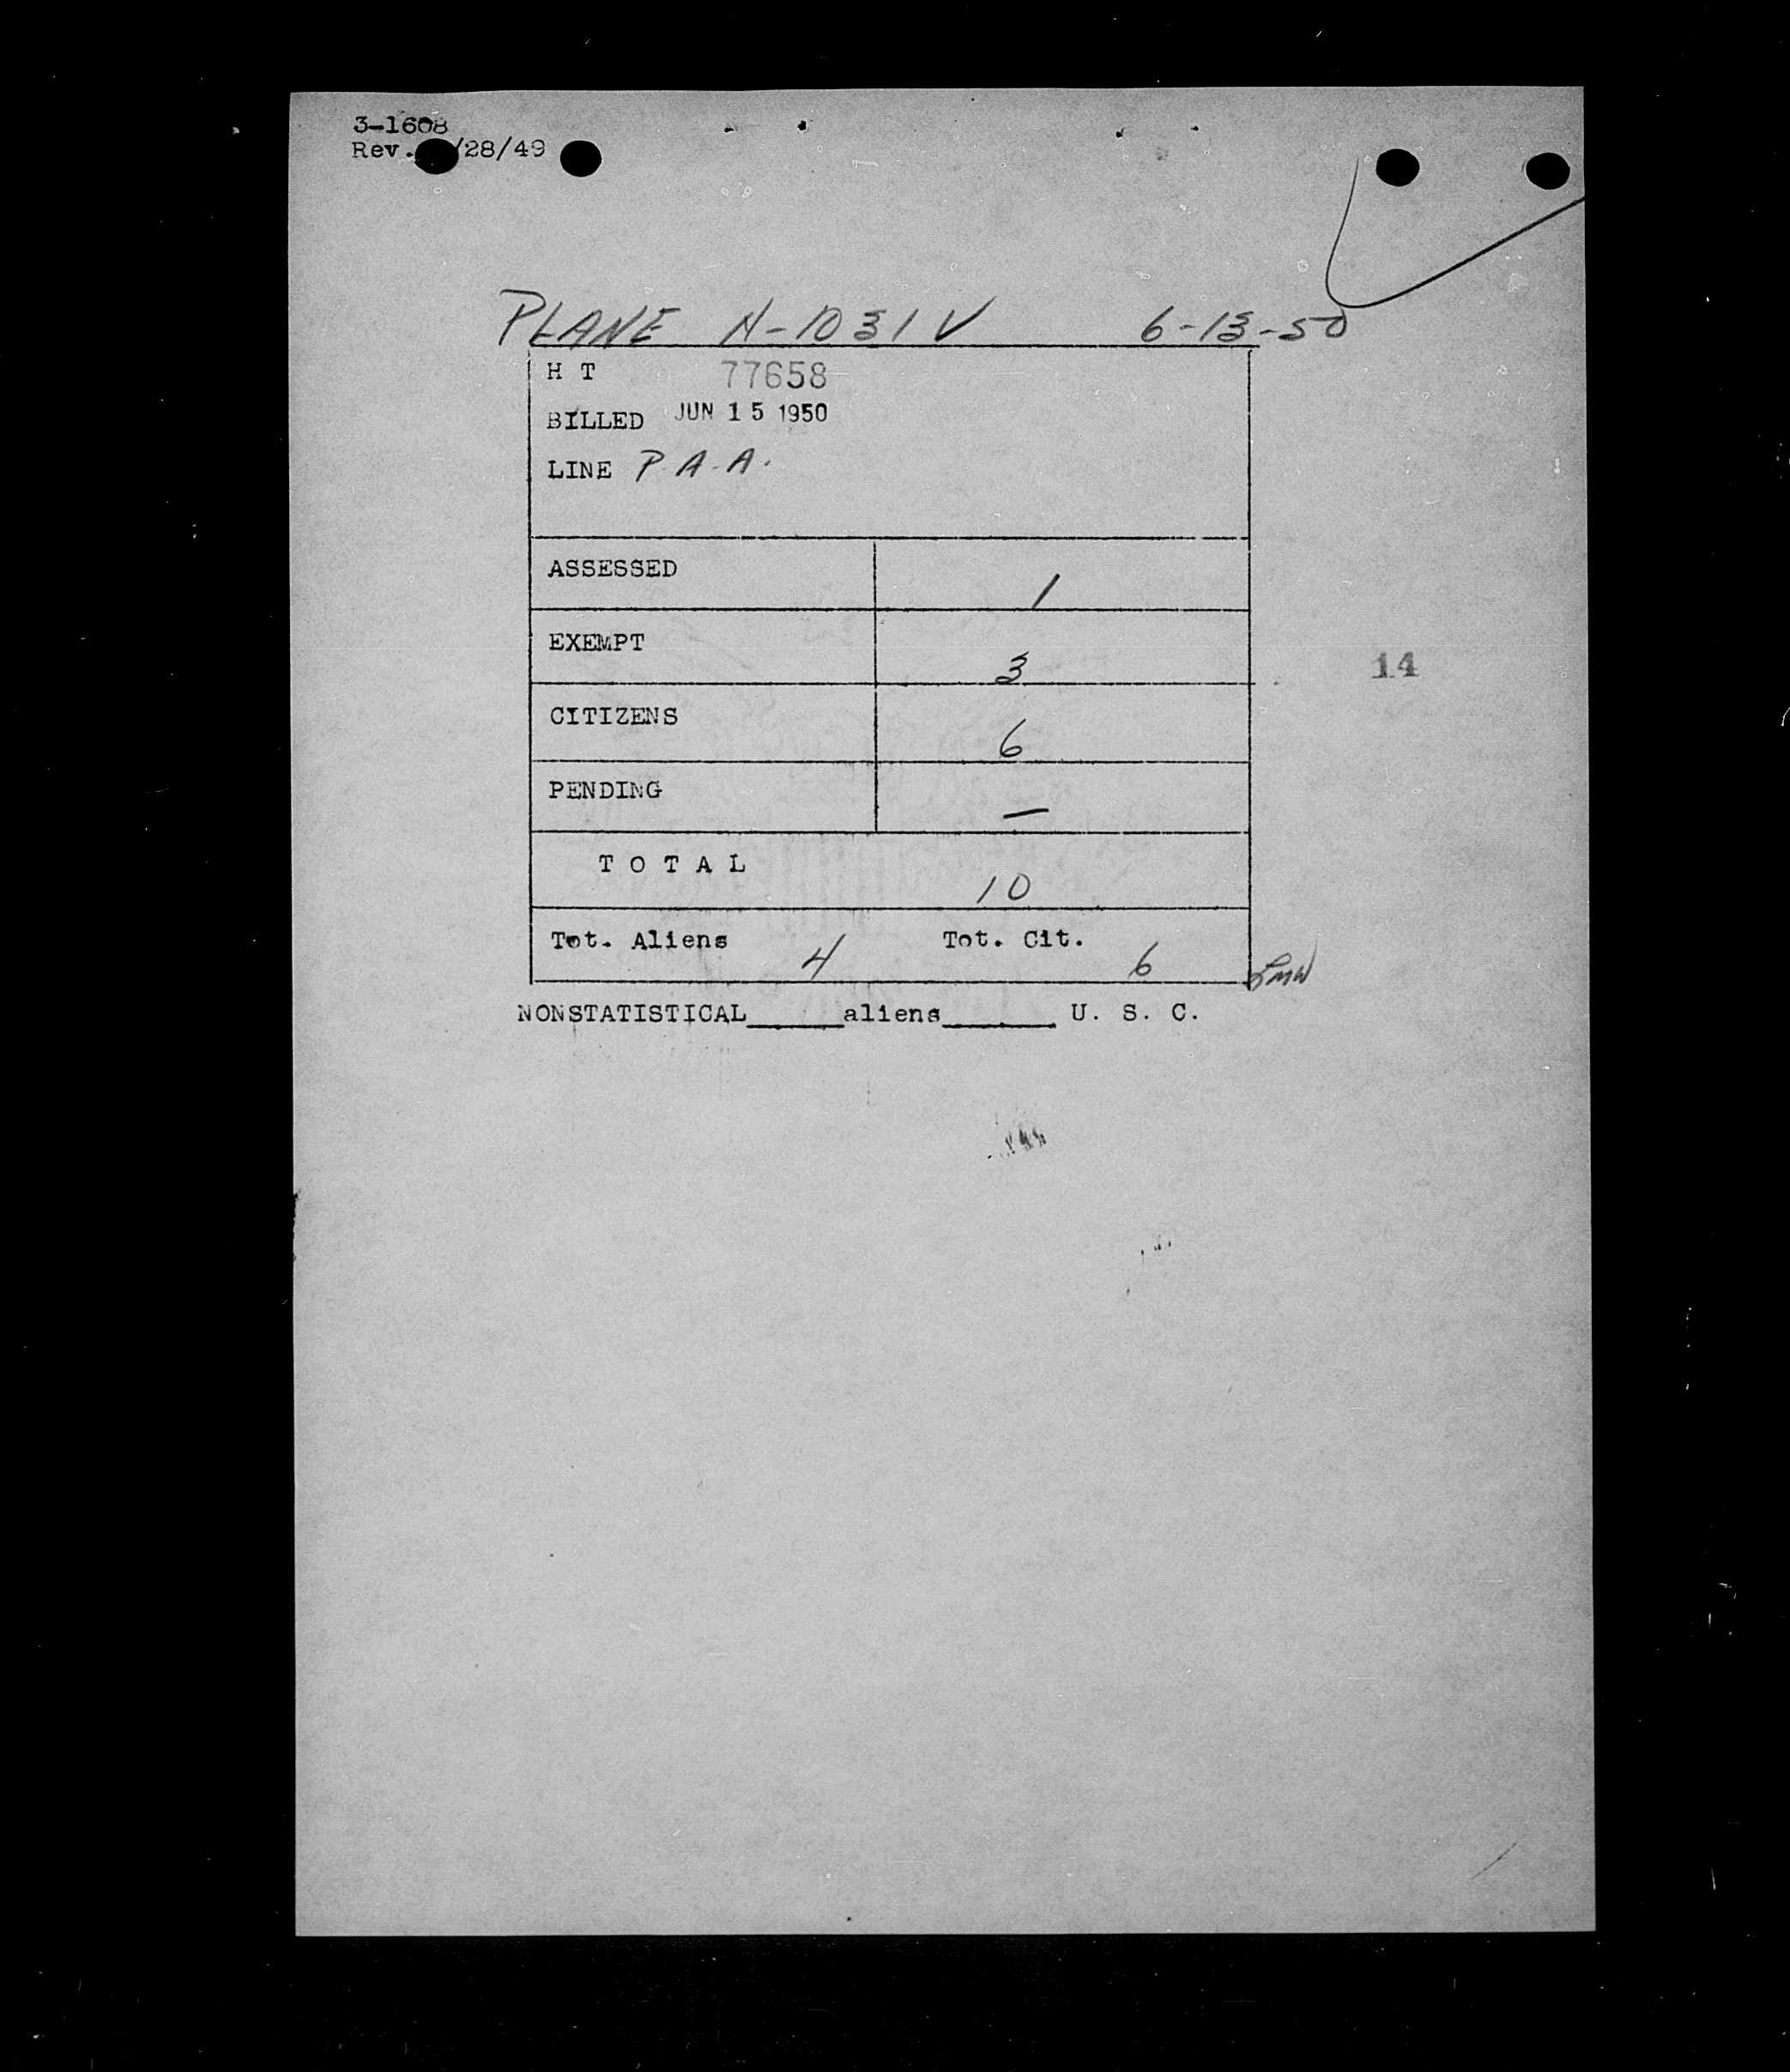 3-1608
Rev. /28/49
PLANE N-1031V 6-13-50
H T 77658
BILLED JUN 15 1950
LINE P.A.A.
ASSESSED 1
EXEMPT 3
14
CITIZENS 6
PENDING —
TOTAL 10
Tot. Aliens 4 Tot. Cit. 6
NONSTATISTICAL______aliens_______ U. S. C.